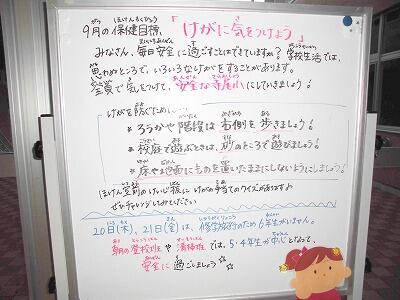 9月の保健目標
「けがに気をつけよう」
みなさん、毎日安全に過ごすことはできていますか？学校生活では、
思わぬところで、いろいろなけがをすることがあります。
全員で気をつけて、安全な寺尾小にしていきましょう！
けがを防ぐために…
＊ろうかや階段は右側を歩きましょう！
＊校庭で遊ぶときは、砂のところで遊びましょう！
＊床や地面にものを置いたままにしないようにしましょう！
ほけん室前のけい心板にけがの手当てのクイズがあります♪
ぜひチャレンジしてみてください
20日(木)、21日(金)は、修学旅行のため6年生がいません。
朝の登校班や清掃班では、5・4年生が中心となって、
安全に過ごしましょう☆☆